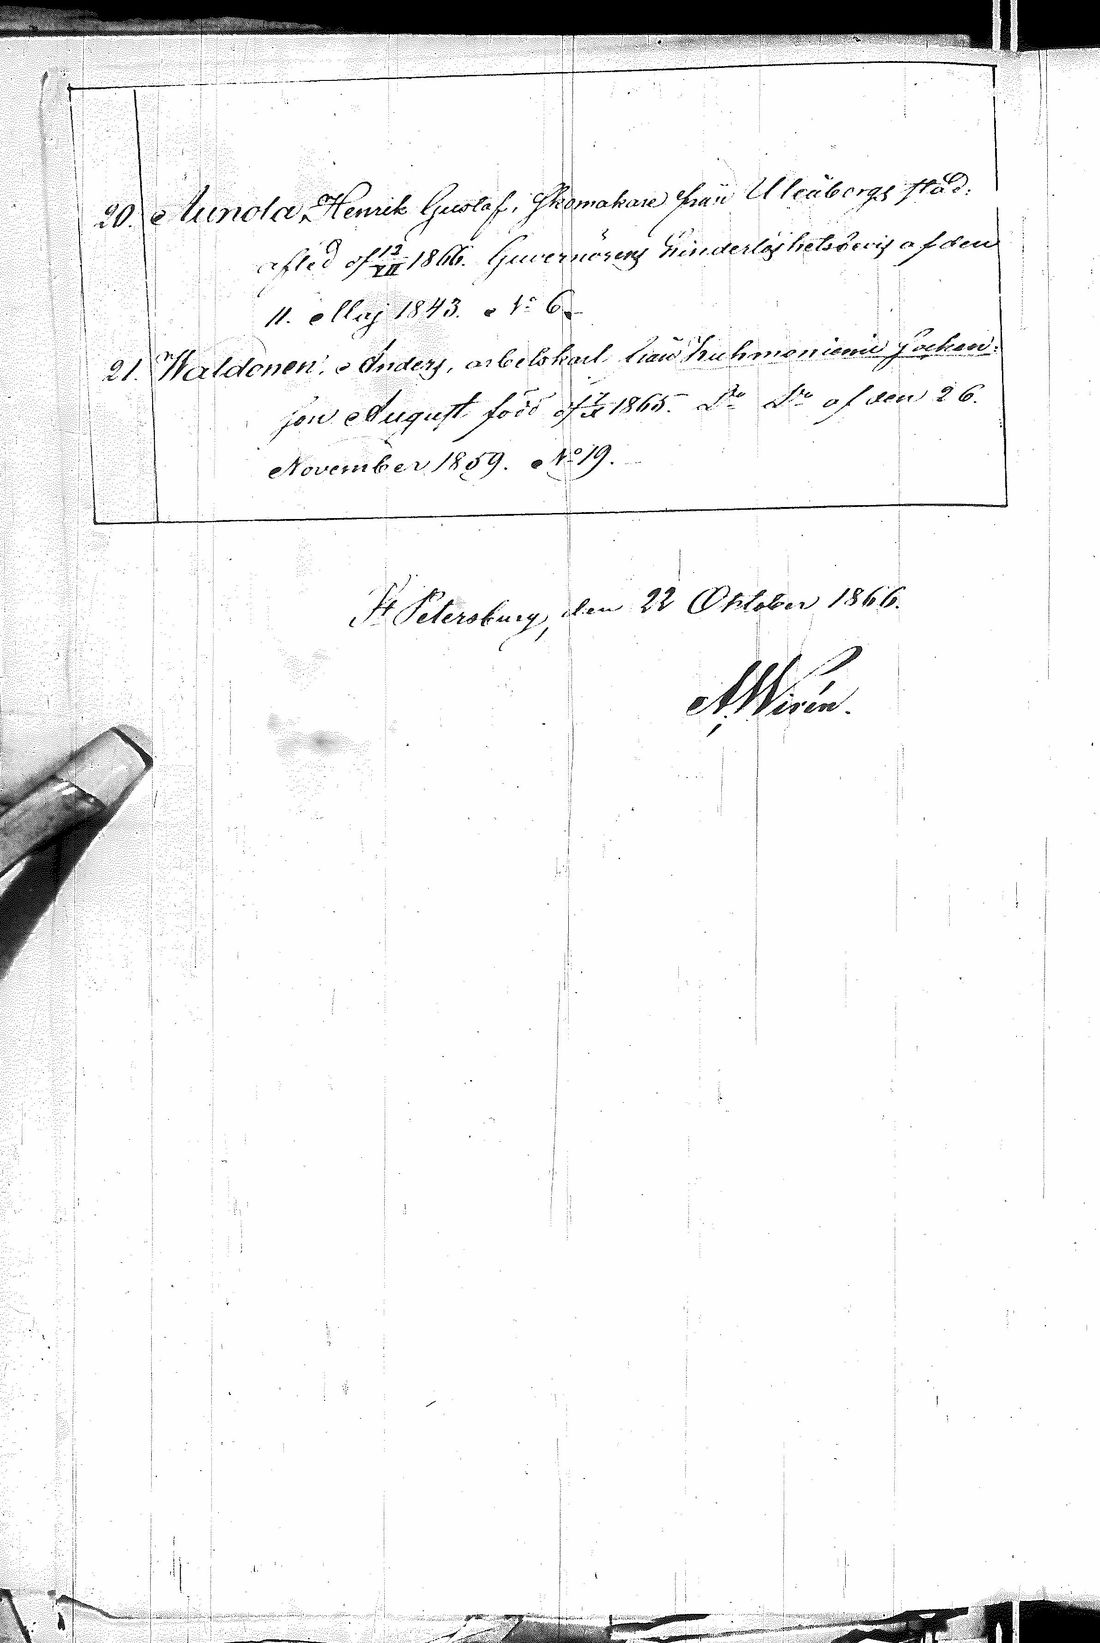 20. Aunola, Henrik Gustaf, Skomakare från Uleåborgs stad:
afled d. 12/VII 1866. Guvernörens hinderlöshetsbevis af den
11. Maj 1843. No 6.
21. Waldonen, Anders, arbetskarl från Kuhmoniemi Socken:
son August född d. 1865. Do Do af den 26.
November 1859. No 19.
St Petersburg, den 22 Oktober 1866.
A. Wirén.